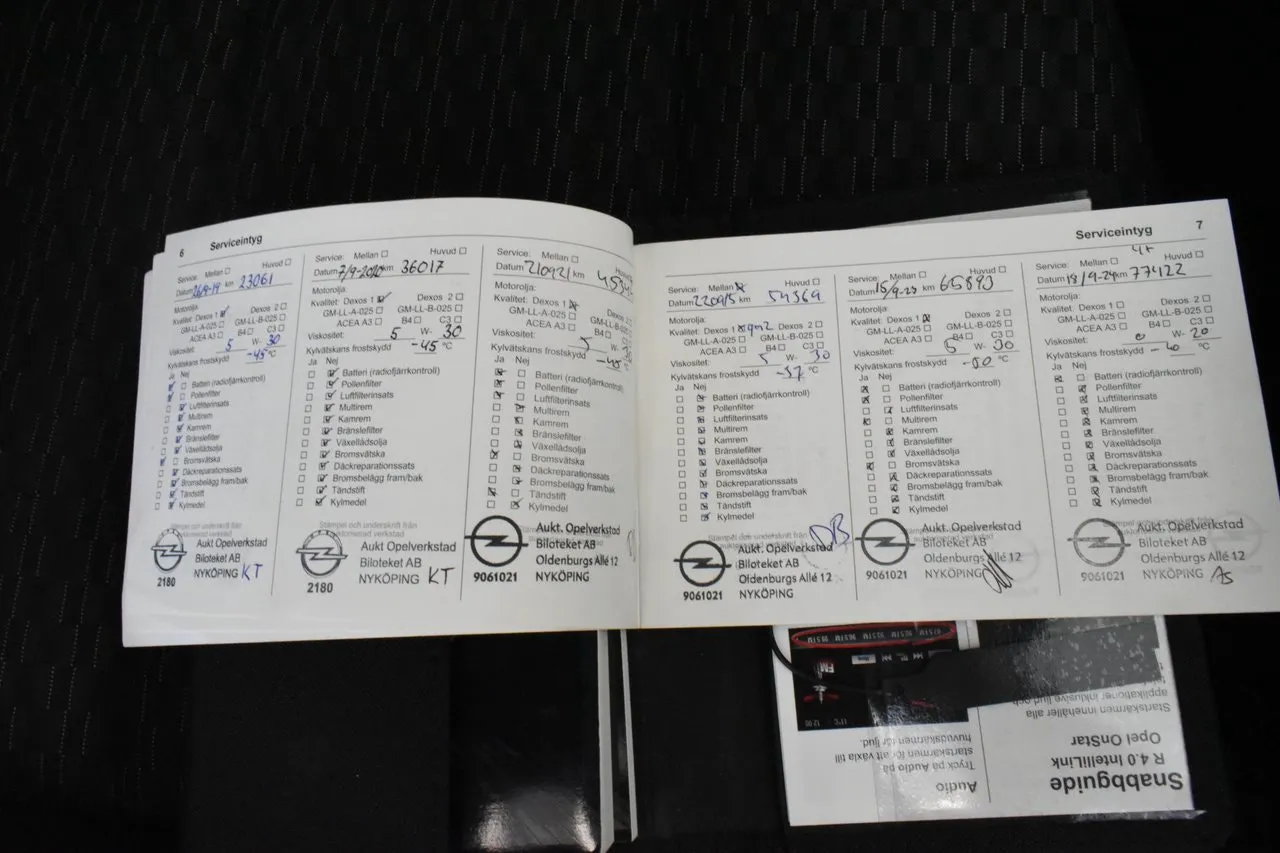 6 Serviceintyg
Service: Mellan ☐ Huvud ☐
Datum 26/9-19 km 23061
Motorolja:
Kvalitet: Dexos 1 ☑ Dexos 2 ☐
GM-LL-A-025 ☐ GM-LL-B-025 ☐
ACEA A3 ☐ B4 ☐ C3 ☐
Viskositet: 5 W- 30
Kylvätskans frostskydd -45 °C
Ja Nej
Batteri (radiofjärrkontroll)
Pollenfilter
Luftfilterinsats
Multirem
Kamrem
Bränslefilter
Växellådsolja
Bromsvätska
Däckreparationssats
Bromsbelägg fram/bak
Tändstift
Kylmedel
Stämpel och underskrift från
Aukt Opelverkstad
Biloteket AB
NYKÖPING KT
2180
Service: Mellan ☐ Huvud ☐
Datum 7/9-2020 km 36017
Motorolja:
Kvalitet: Dexos 1 ☑ Dexos 2 ☐
GM-LL-A-025 ☐ GM-LL-B-025 ☐
ACEA A3 ☐ B4 ☐ C3 ☐
Viskositet: 5 W- 30
Kylvätskans frostskydd -45 °C
Ja Nej
Batteri (radiofjärrkontroll)
Pollenfilter
Luftfilterinsats
Multirem
Kamrem
Bränslefilter
Växellådsolja
Bromsvätska
Däckreparationssats
Bromsbelägg fram/bak
Tändstift
Kylmedel
Stämpel och underskrift från
Aukt Opelverkstad
Biloteket AB
NYKÖPING KT
2180
Service: Mellan ☐ Huvud
Datum 210921 km
Motorolja:
Kvalitet: Dexos 1 ☒ Dexos 2
GM-LL-A-025 ☐ GM-LL-B-025
ACEA A3 ☐ B4 ☐
Viskositet: 5 W-
Kylvätskans frostskydd -45
Ja Nej
Batteri (radiofjärrkontroll)
Pollenfilter
Luftfilterinsats
Multirem
Kamrem
Bränslefilter
Växellådsolja
Bromsvätska
Däckreparationssats
Bromsbelägg fram/bak
Tändstift
Kylmedel
Aukt. Opelverkstad
Biloteket AB
Oldenburgs Allé
NYKÖPING
9061021
Serviceintyg 7
Service: Mellan ☒ Huvud ☐
Datum 220915 km 54364
Motorolja:
Kvalitet: Dexos 1 ☒ gen2 Dexos 2 ☐
GM-LL-A-025 ☐ GM-LL-B-025 ☐
ACEA A3 ☐ B4 ☐ C3 ☐
Viskositet: 5 W- 30
Kylvätskans frostskydd -37 °C
Ja Nej
Batteri (radiofjärrkontroll)
Pollenfilter
Luftfilterinsats
Multirem
Kamrem
Bränslefilter
Växellådsolja
Bromsvätska
Däckreparationssats
Bromsbelägg fram/bak
Tändstift
Kylmedel
Stämpel och underskrift från
Aukt. Opelverkstad DB
Biloteket AB
Oldenburgs Allé 12
NYKÖPING
9061021
Service: Mellan ☐ Huvud ☐
Datum 15/9-23 km 65893
Motorolja:
Kvalitet: Dexos 1 ☒ Dexos 2 ☐
GM-LL-A-025 ☐ GM-LL-B-025 ☐
ACEA A3 ☐ B4 ☐ C3 ☐
Viskositet: 5 W- 30
Kylvätskans frostskydd -50 °C
Ja Nej
Batteri (radiofjärrkontroll)
Pollenfilter
Luftfilterinsats
Multirem
Kamrem
Bränslefilter
Växellådsolja
Bromsvätska
Däckreparationssats
Bromsbelägg fram/bak
Tändstift
Kylmedel
Aukt. Opelverkstad
Biloteket AB
Oldenburgs Allé 12
NYKÖPING
9061021
Service: Mellan ☐ Huvud ☐
Datum 18/9-24 km 77422
Motorolja:
Kvalitet: Dexos 1 ☐ Dexos 2 ☐
GM-LL-A-025 ☐ GM-LL-B-025 ☐
ACEA A3 ☐ B4 ☐ C3 ☐
Viskositet: 0 W- 20
Kylvätskans frostskydd -40 °C
Ja Nej
Batteri (radiofjärrkontroll)
Pollenfilter
Luftfilterinsats
Multirem
Kamrem
Bränslefilter
Växellådsolja
Bromsvätska
Däckreparationssats
Bromsbelägg fram/bak
Tändstift
Kylmedel
Aukt. Opelverkstad
Biloteket AB
Oldenburgs Allé 12
NYKÖPING AS
9061021
Snabbguide
R 4.0 IntelliLink
Opel OnStar
Startskärmen innehåller alla
applikationer inklusive ljud och
Audio
Tryck på Audio på
startskärmen för att växla till
huvudskärmen för ljud.